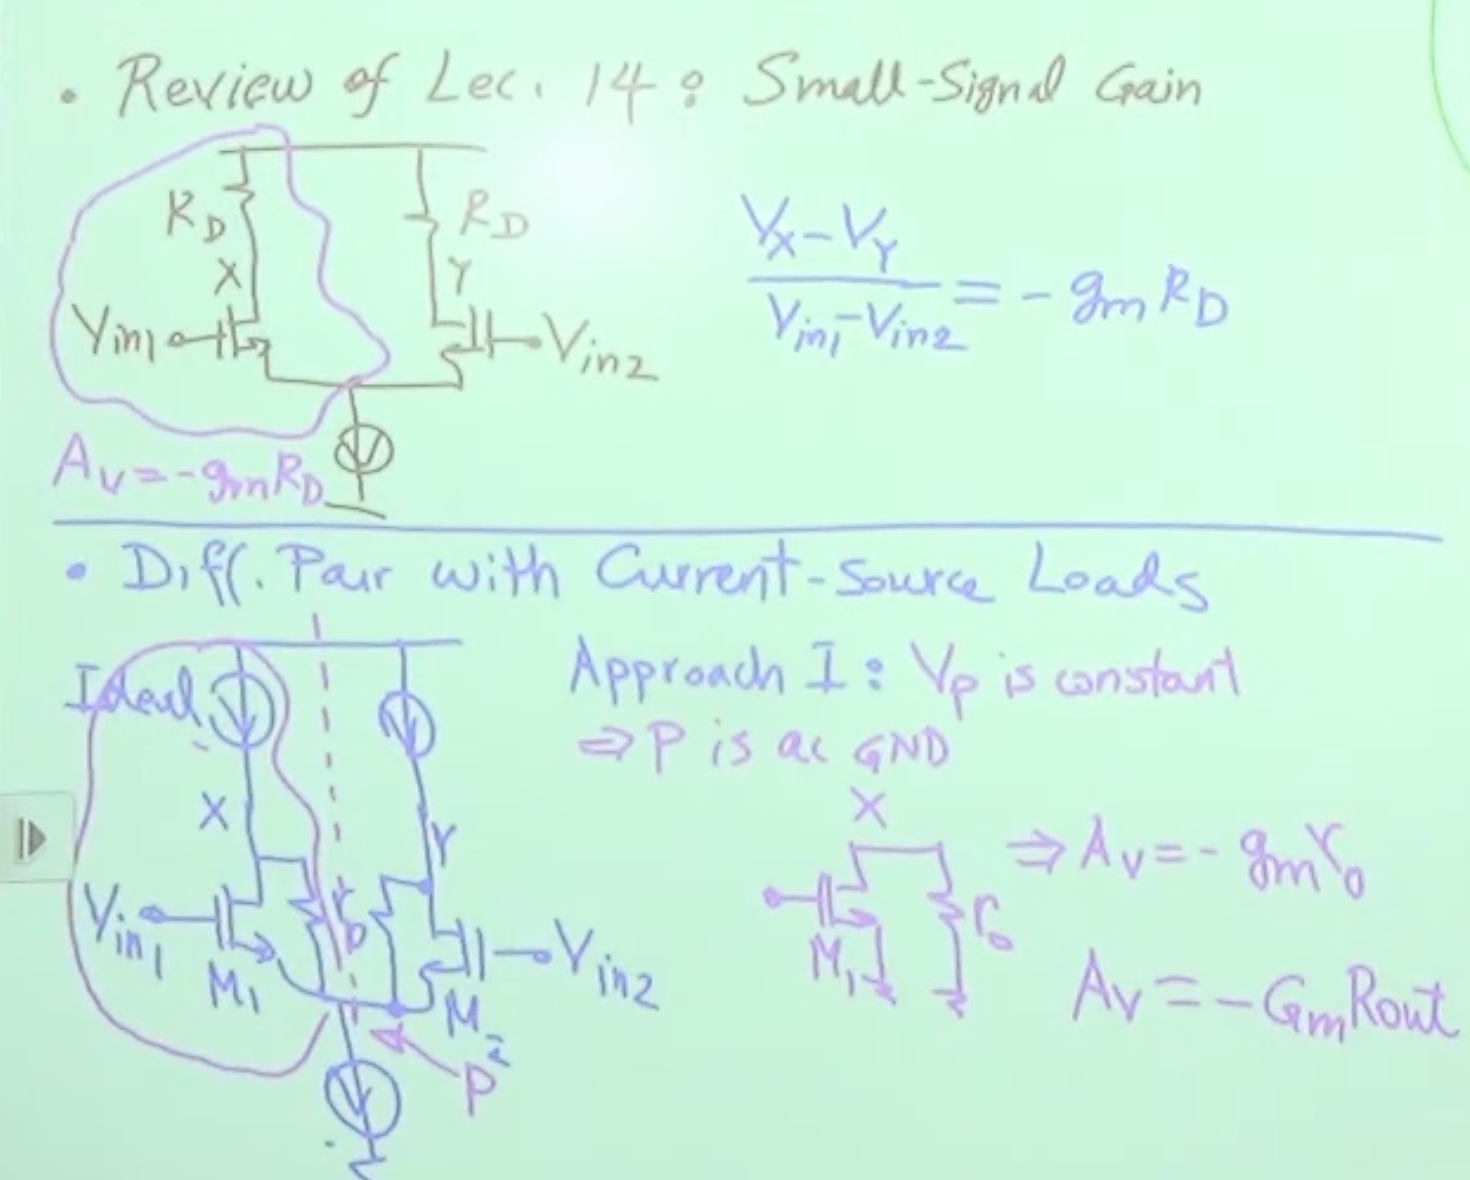 • Review of Lec. 14 : Small-Signal Gain
RD
RD
X
Y
Vin1
Vin2
Av = -gmRD
Vx-VY
Vin1-Vin2
= - gm RD
• Diff. Pair with Current-Source Loads
Ideal
X
Y
Vin1
M1
ro
M2
Vin2
P
Approach I : Vp is constant
⇒ P is ac GND
X
M1
ro
⇒ Av = - gmro
Av = - GmRout